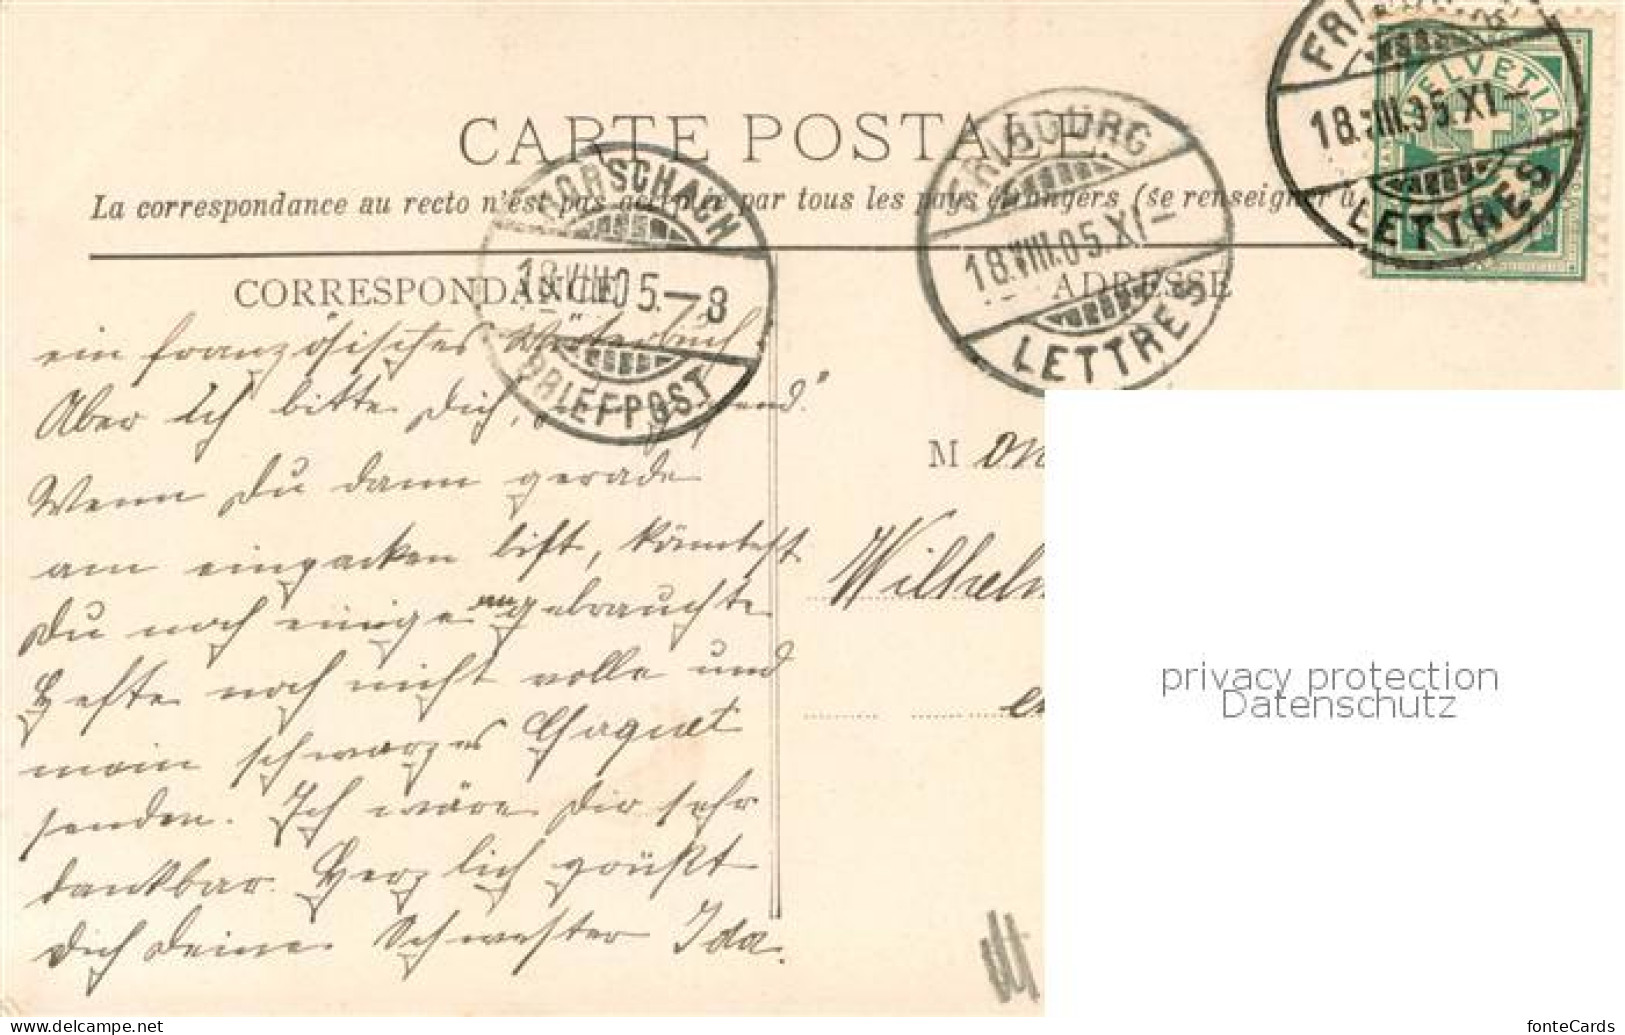 CARTE POSTALE
La correspondance au recto n'est pas acceptée par tous les pays étrangers (se renseigner à
CORRESPONDANCE
ADRESSE
RORSCHACH
18.VIII.05.–8
BRIEFPOST
FRIBOURG
18.VIII.05.XI–
LETTRES
FRI
18.VIII.05.XI–
LETTRES
HELVETIA
ein französisches Wörterbuch
Aber ich bitte Dich,
Wenn Du dann gerade
am einpacken bist, könntest
Du noch einige ungebrauchte
Hefte noch nicht volle und
mein schwarzes Jaquet
senden. Ich wäre Dir sehr
dankbar. Herzlich grüßt
Dich Deine Schwester Ida.
M on
Wilhelm
privacy protection
Datenschutz
www.delcampe.net
fonteCards